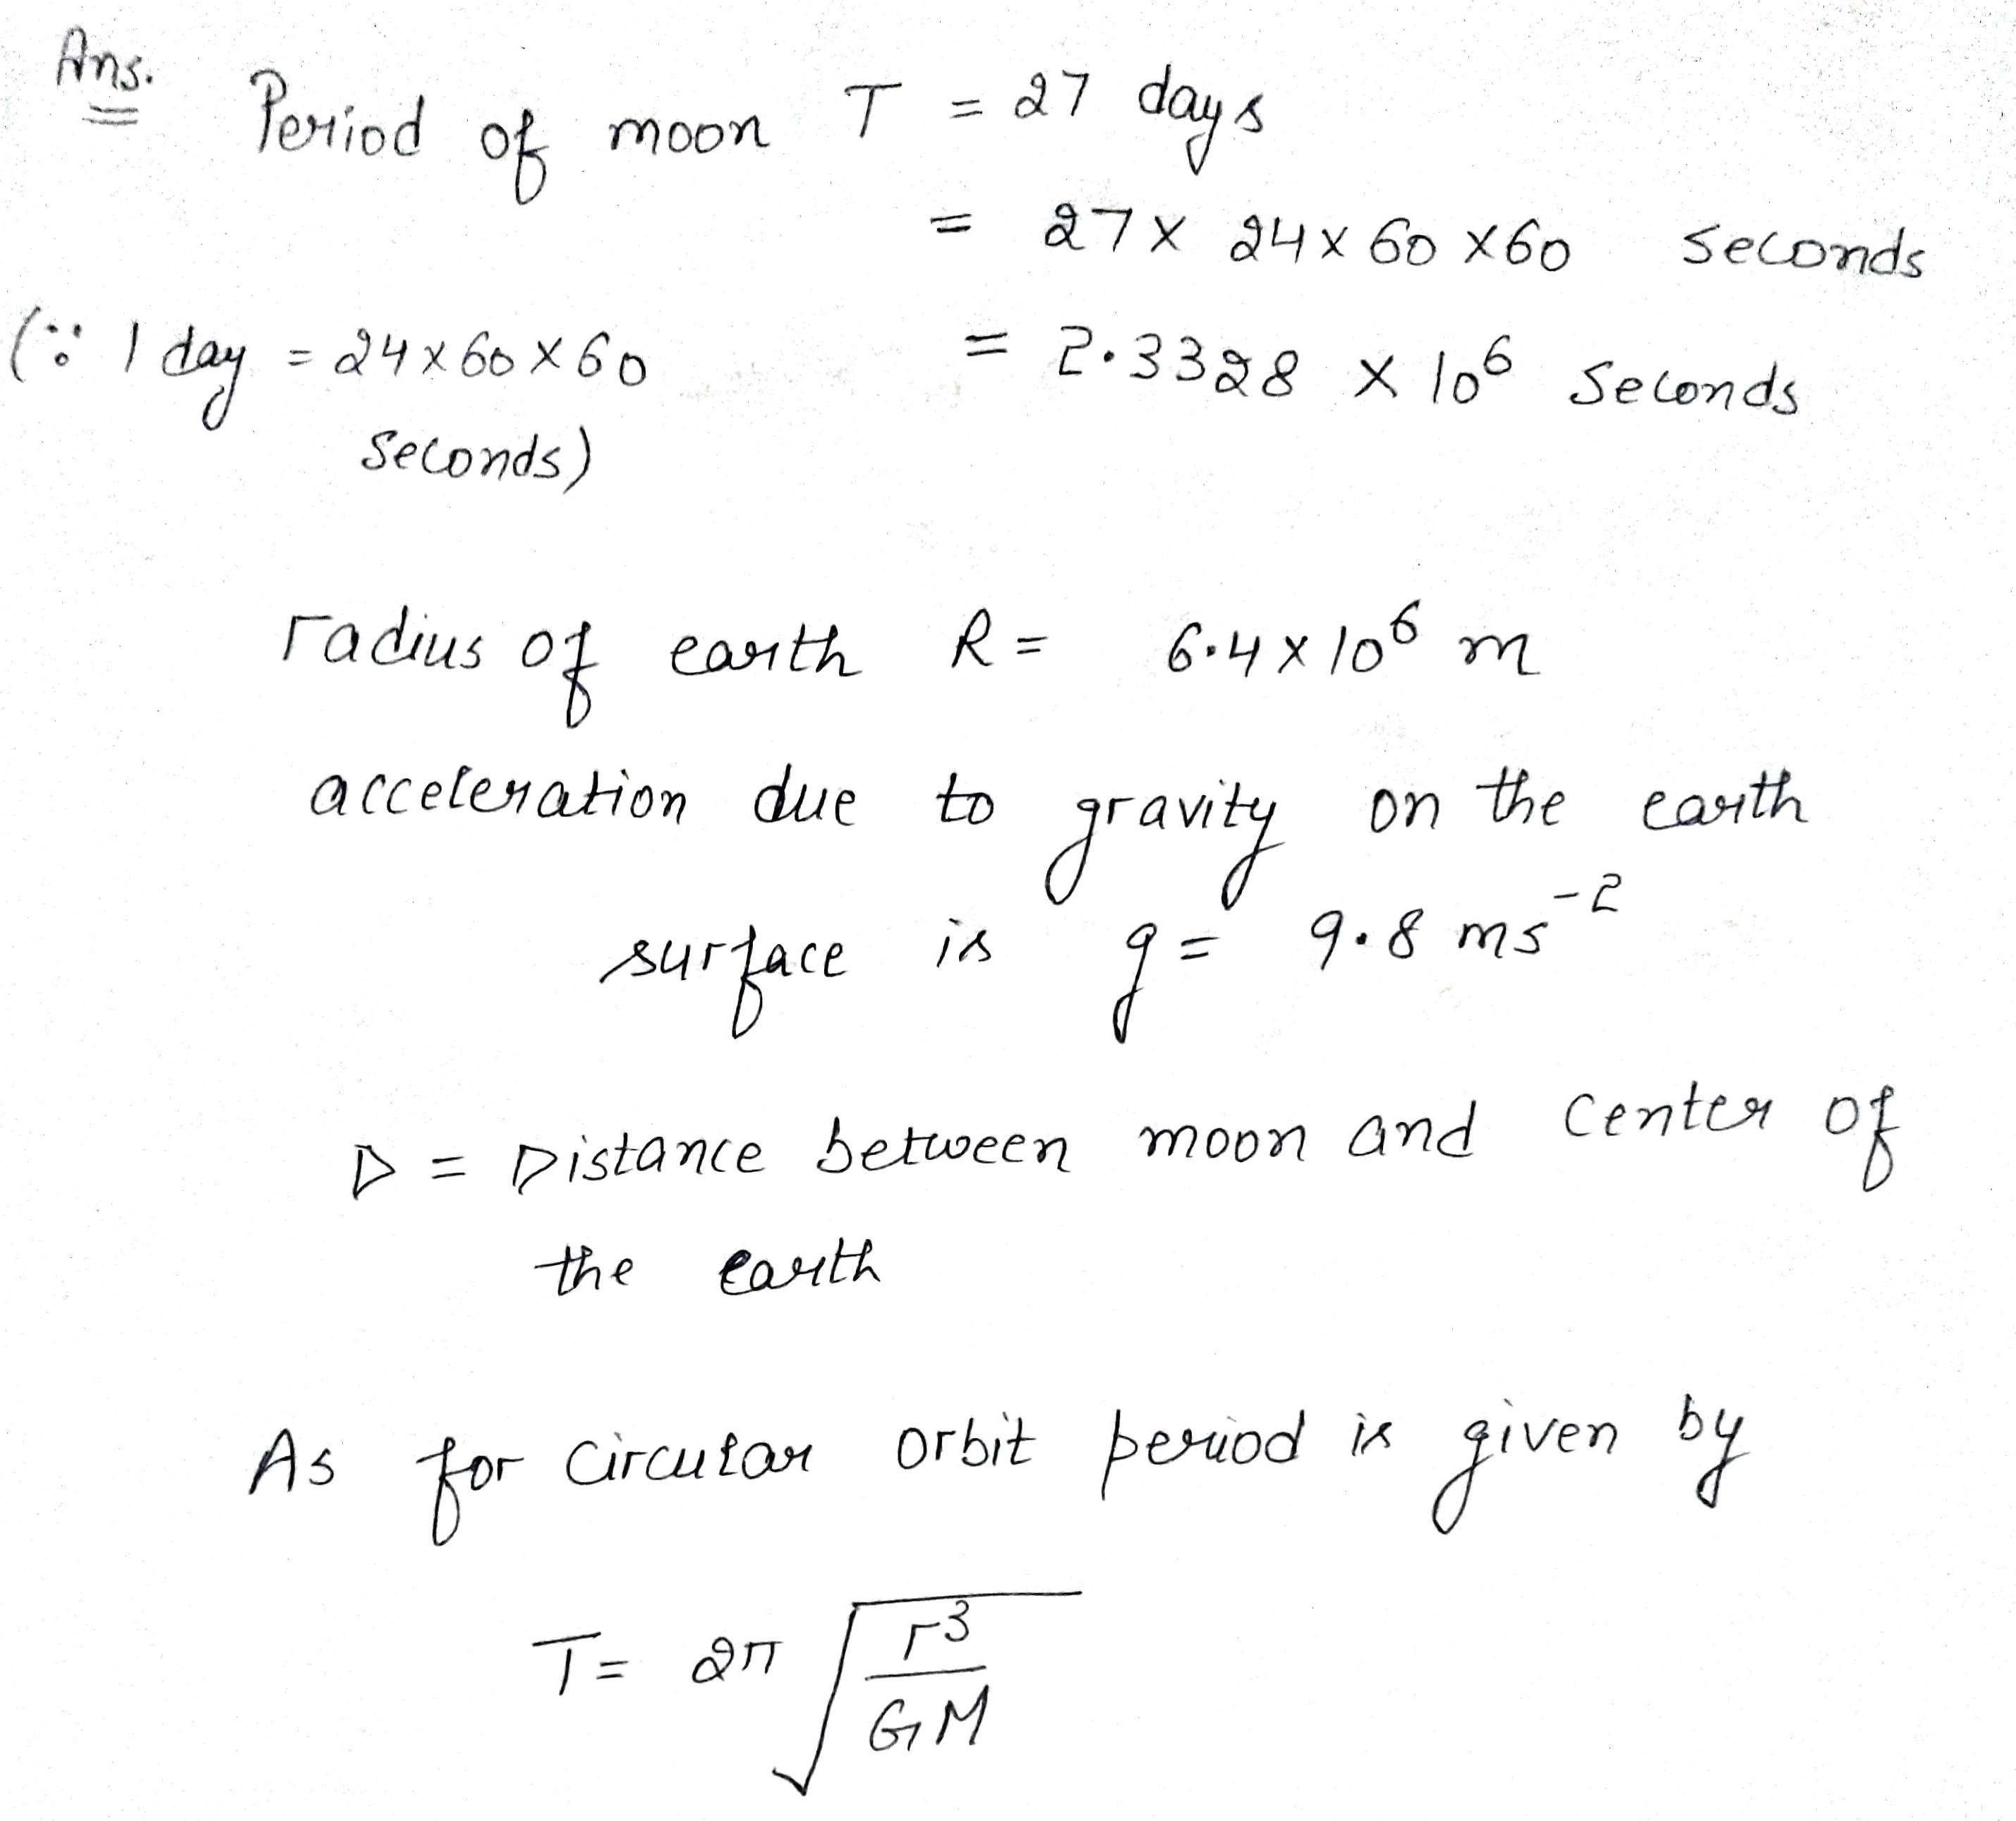 Ans.
Period of moon T = 27 days
= 27 x 24 x 60 x 60 seconds
(∵ 1 day = 24 x 60 x 60 seconds)
= 2.3328 x 10⁶ seconds
radius of earth R = 6.4 x 10⁶ m
acceleration due to gravity on the earth
surface is g = 9.8 ms⁻²
D = Distance between moon and center of
the earth
As for circular orbit period is given by
T = 2π √(r³/GM)